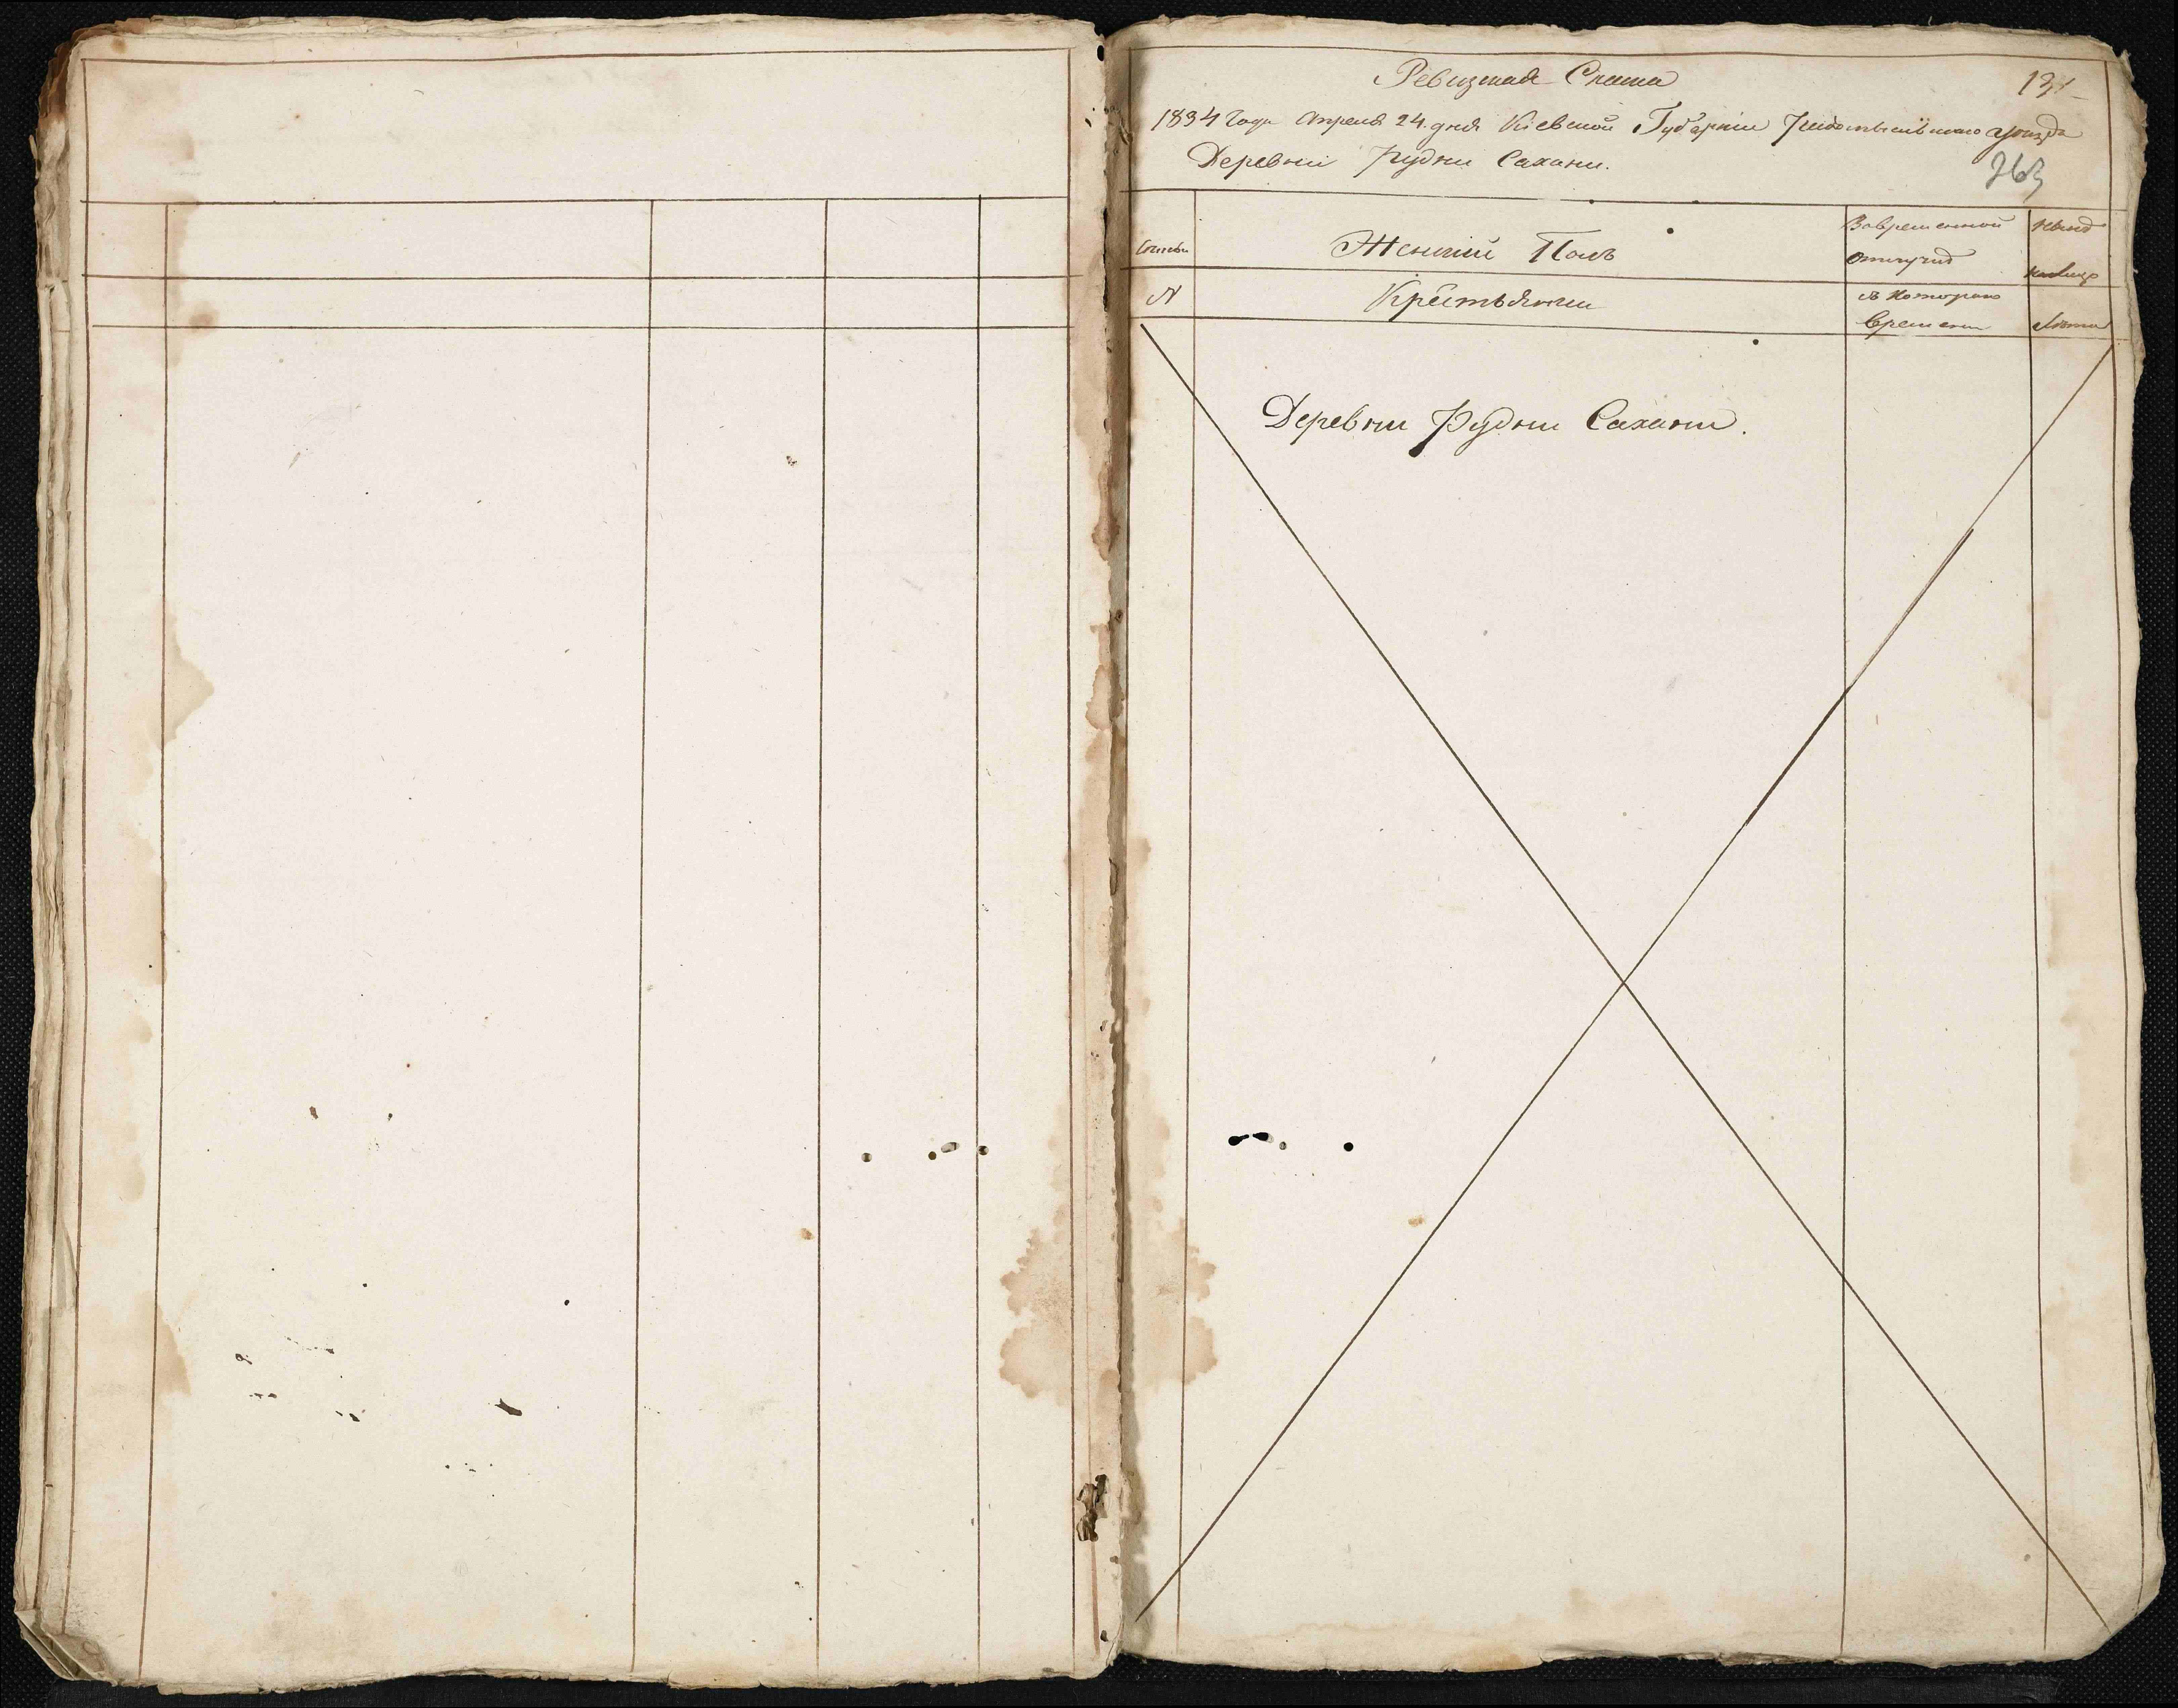 Ревизская Сказка
131
1834 Года Апреля 24 дня Кіевской Губерніи Радомысльскаго уезда
Деревни Рудни Сахани.
263
Семьи
Женскій Полъ
Вовременной
отлучке
Ныне
налицо
№
Крестьянки
Съ Котораго
Времени
Лета
Деревни Рудни Сахани.